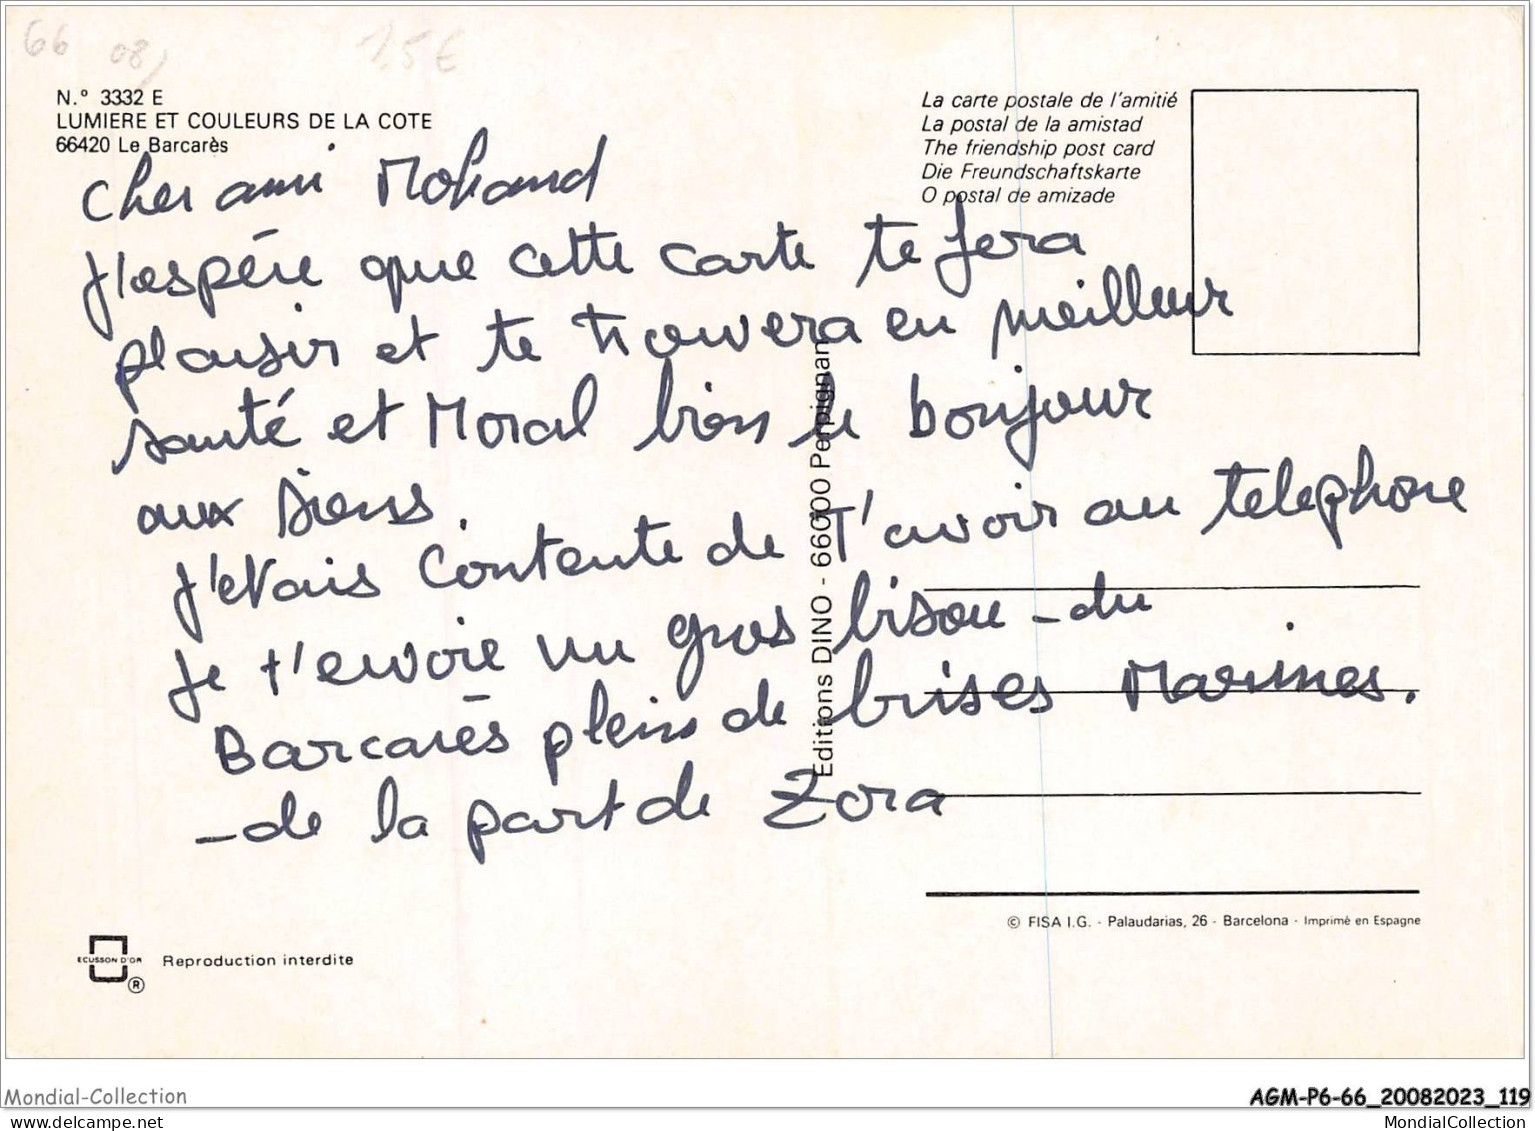 66 08) 1.5€
N.° 3332 E
LUMIERE ET COULEURS DE LA COTE
66420 Le Barcarès
La carte postale de l'amitié
La postal de la amistad
The friendship post card
Die Freundschaftskarte
O postal de amizade
Cher ami Mohand
J'espére que cette carte te fera
plaisir et te trouvera en meilleur
santé et Moral bien le bonjour
aux siens.
J'etais Contente de T'avoir au telephone
Je t'envoie un gros bisou - du
Barcarès plein de brises Marines.
- de la part de Zora
Editions DINO - 66000 Perpignan
© FISA I.G. - Palaudarias, 26 - Barcelona - Imprimé en Espagne
ECUSSON D'OR
®
Reproduction interdite
Mondial-Collection
AGM-P6-66_20082023_119
MondialCollection